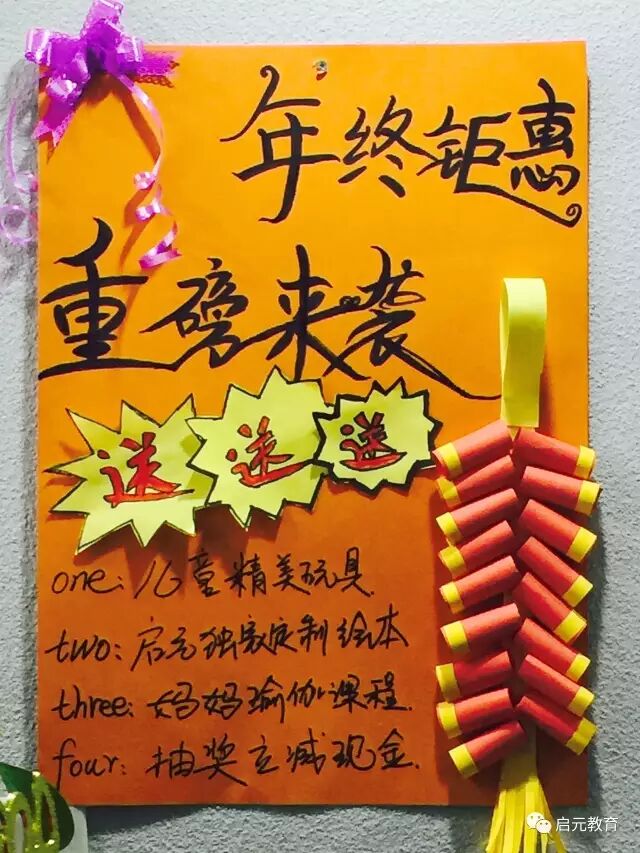 年终钜惠
重磅来袭
送 送 送
one: 儿童精美玩具.
two: 启元独家定制绘本
three: 妈妈瑜伽课程.
four: 抽奖立减现金.
启元教育